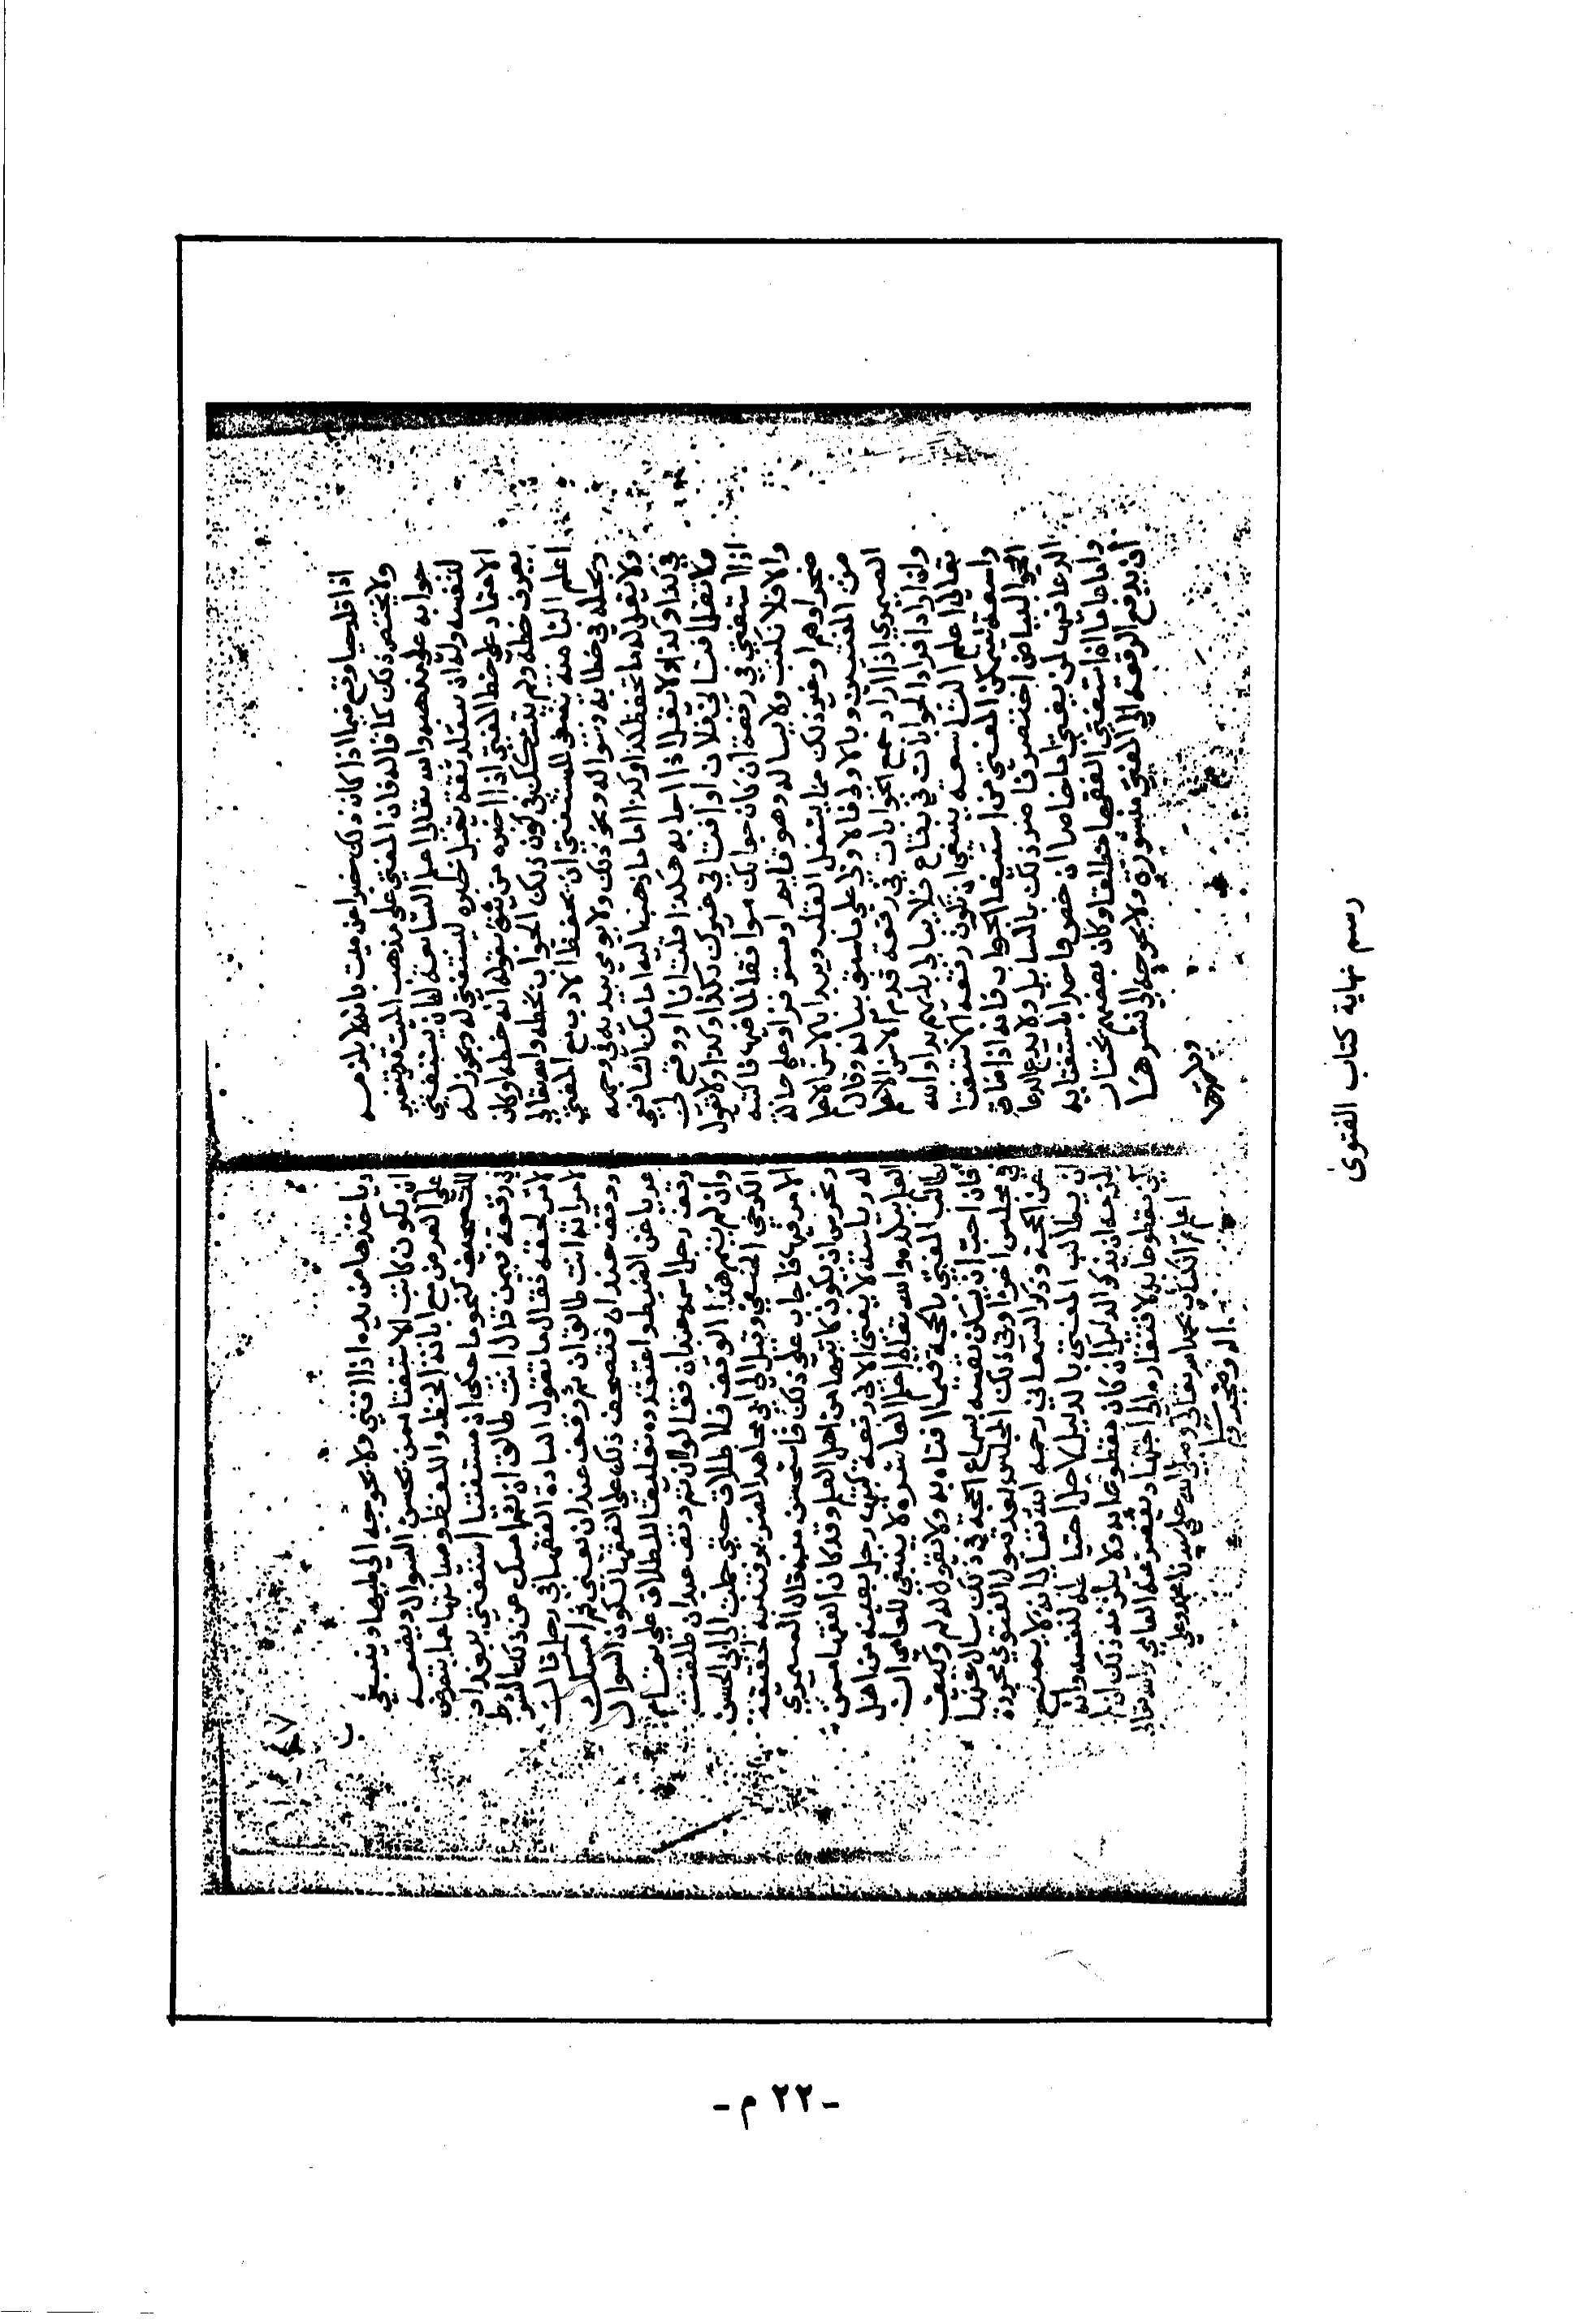 اذا قلد حيا وقع فيما اذا كان ذلك خبرا عن ميت بانه لا يلزمه
ولا يختص ذلك كما قاله فان المفتي على مذهب الميت قد تغير
جوابه على مذهبه والله تعالى اعلم السابعة يستفتي
لنفسه وله ان ينفذ ثقة يقبل خبره ليستفتي له ويجوز له
الاعتماد على خط المفتي اذا اخبره من يثق بقوله انه خطه او كان
يعرف خطه ولم يتشكك في كون ذلك الجواب بخطه والله تعالى
اعلم الثامنة ينبغي للمستفتي ان يحفظ الادب مع المفتي
ويجله في خطابه وسؤاله ونحو ذلك ولا يومي بيده في وجهه
ولا يقل له ما تحفظ كذا وكذا امامك الشافعي
في كذا وكذا ولا يقل اذا اجابه هكذا قلت انا او وقع لي
ولا تقل افتاني فلان او افتاني غيرك بكذا وكذا ولا تقول
اذا استفتي في رقعة ان كان جوابك موافقا لما فيها فاكتبه
والا فلا تكتب ولا يساله وهو قايم او مستوفز او على حالة
ضجر او هم او غير ذلك مما يشغل القلب ويبدا بالاسن الاعلم
من المفتيين وبالاولى فالاولى على ما سبق بيانه وقال
الصيمري اذا اراد جمع الجوابات في رقعة قدم الاسن الاعلم
وان اراد افراد الجوابات في رقاع فلا يبالي بايهم بدا والله
تعالى اعلم التاسعة ينبغي ان تكون رقعة الاستفتا
واسعة ليتمكن المفتي من استيفا الجواب فانه اذا ضاق
البياض اختصر فاضر ذلك بالسايل ولا يدع الدعا
فيها لمن يفتي اما خاصا ان خص واحدا باستفتايه
واما عاما ان استفتي الفقها مطلقا وكان بعضهم يختار
ان يدفع الرقعة الى المفتي منشورة ولا يحوجه الى نشرها
وياخذها من يده اذا افتى ولا يحوجه الى طيها وينبغي
ان يكون كاتب الاستفتا ممن يحسن السوال ويضعه
على الغرض مع ابانة الخط واللفظ وصيانتهما عما يتعرض
للتصحيف كنحو ما حكي ان مستفتيا استفتى ببغداد
في رقعة فيمن قال انت طالق ان ثم امسك عن ذكر الشرط
لامر لحقه فقال ما تقول السادة الفقها في رجل قال
لامراته انت طالق ان ثم وقف عند ان يعني ثم امسك
ووقف عند ان فتصحف ذلك على الفقها لكون السوال
عريا عن الضبط واعتقدوه تعليقا للطلاق على تمام
وقف رجل اسمه عبدان فقالوا ان تم وقف عبدان طلقت
وان لم يتم هذا الوقف فلا طلاق حتى حملت الى ابي الحسن
الكرخي الحنفي وقيل الى ابي مجاهد الضرير فتنبه لحقيقة
الامر فيها فاجاب على ذلك فاستحسن منه قال الصيمري
ويحرص ان يكون كاتبها من اهل العلم وقد كان الفقها ممن
له رياسة لا يفتي الا في رقعة كتبها رجل بعينه من اهل
العلم ببلده والله تعالى اعلم العاشرة لا ينبغي للعامي ان
يطالب المفتي بالحجة فيما افتاه به ولا يقول له لم وكيف
فان احب ان يسكن نفسه بسماع الحجة في ذلك سال عنها
في مجلس اخر او في ذلك المجلس بعد قبول الفتوى مجردة
عن الحجة وذكر السمعاني رحمه الله تعالى انه لا يمنع
ان يطالب المفتي بالدليل لاجل احتياطه لنفسه وانه
يلزمه ان يذكر الدليل ان كان مقطوعا به ولا يلزمه ذلك ان لم
يكن مقطوعا به لافتقاره الى اجتهاد يقصر عنه العامي
اعلم تم الكتاب بحمد الله تعالى وصلى الله على سيدنا محمد وعلى
اله وصحبه وسلم
رسم نهاية كتاب الفتوى
- ٢٢ م -